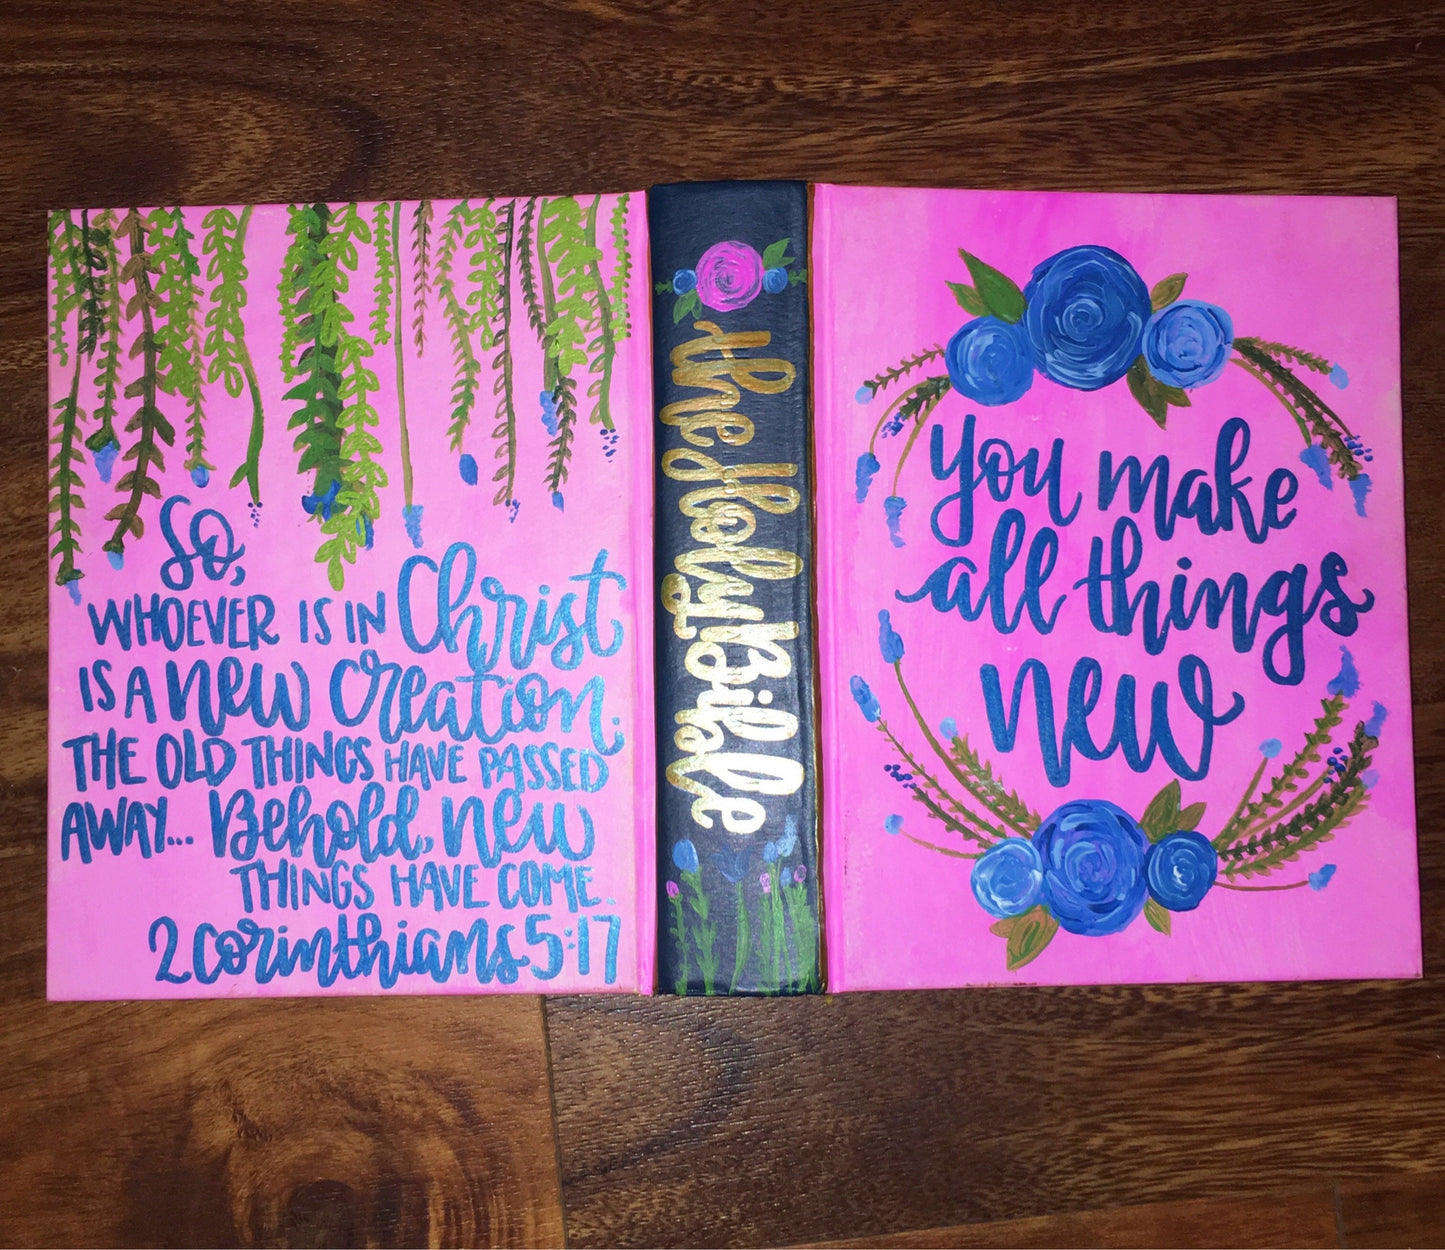 So,
WHOEVER IS IN Christ
IS A New Creation.
THE OLD THINGS HAVE PASSED
AWAY... Behold, New
THINGS HAVE COME.
2 Corinthians 5:17
the Holy Bible
You make
all things
new